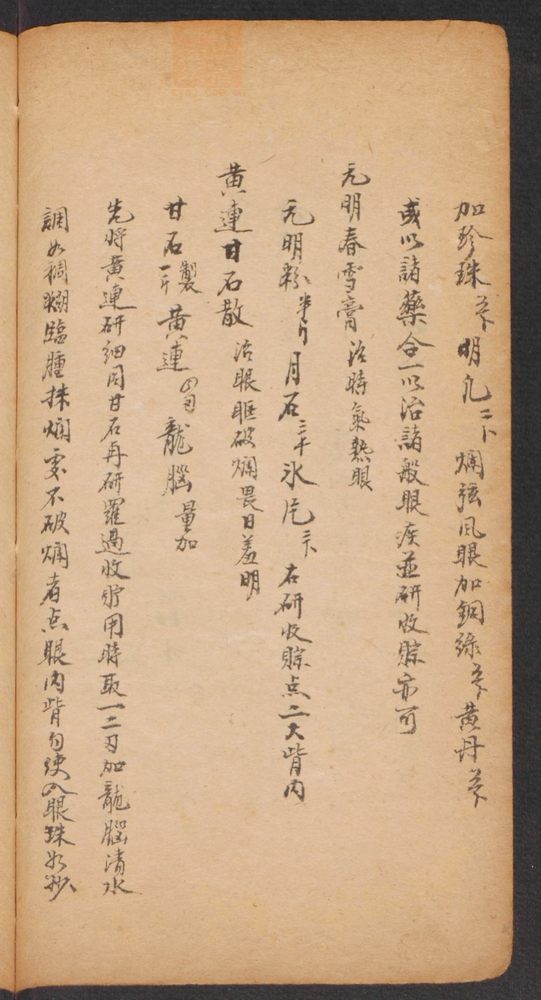 加珍珠 明凡二卜 爛弦风眼加铜綠 黄丹
或以諸藥合一以治諸般眼疾並研收賒亦可
元明春雪膏 治時氣熱眼
元明粉半斤 月石三千 氷片三卜 右研收賒点二大眥内
黄連甘石散 治眼眶破爛畏日羞明
甘石製一斤 黄連四匁 龍腦量加
先將黄連研細同甘石再研羅過收貯用時取一二匁加龍腦清水
調如稠糊臨腫抹爛䖏不破爛者点眼内眥勿使入眼珠如妙